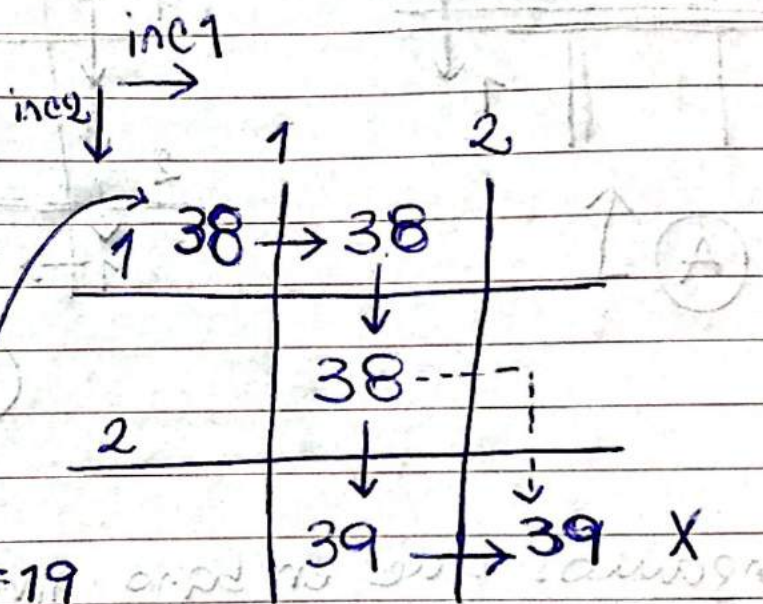 inc1
inc2
1 2
1 38 → 38
38
2
39 → 39 X
=19